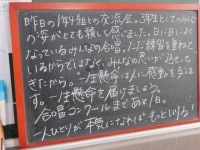 昨日の1年4組との交流会。3年生としてのみんな
の姿がとても嬉しく感じました。日に日によく
なっているみんなの合唱。ただ練習を重ねて
いるからではなく、みんなの思いが
きたから。一生懸命は人に感動を
す。一生懸命を届けましょう。
合唱コンクールまであと1日。
一人ひとりが本気になれば、もっといける!